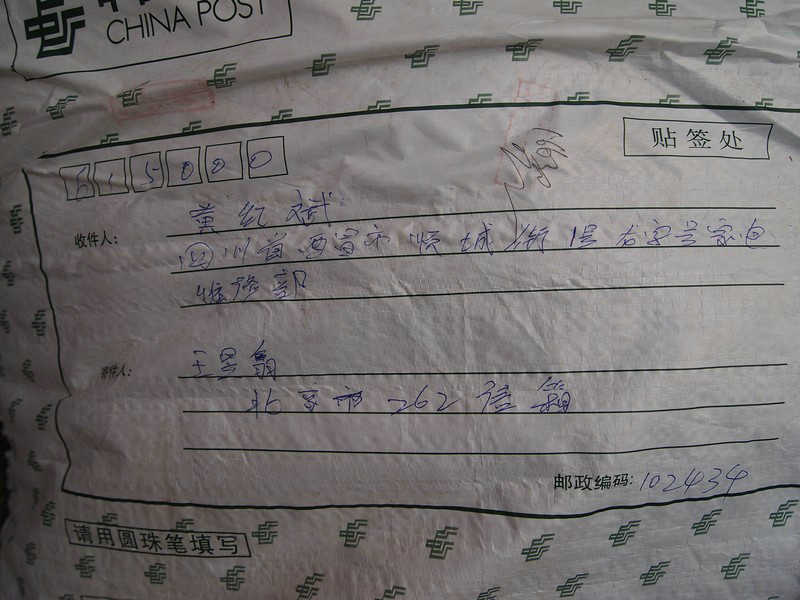 CHINA POST
贴签处
615000
收件人: 黄红斌
四川省西昌市顺城街
家电
维修部
寄件人: 王
北京市262信箱
邮政编码: 102434
请用圆珠笔填写